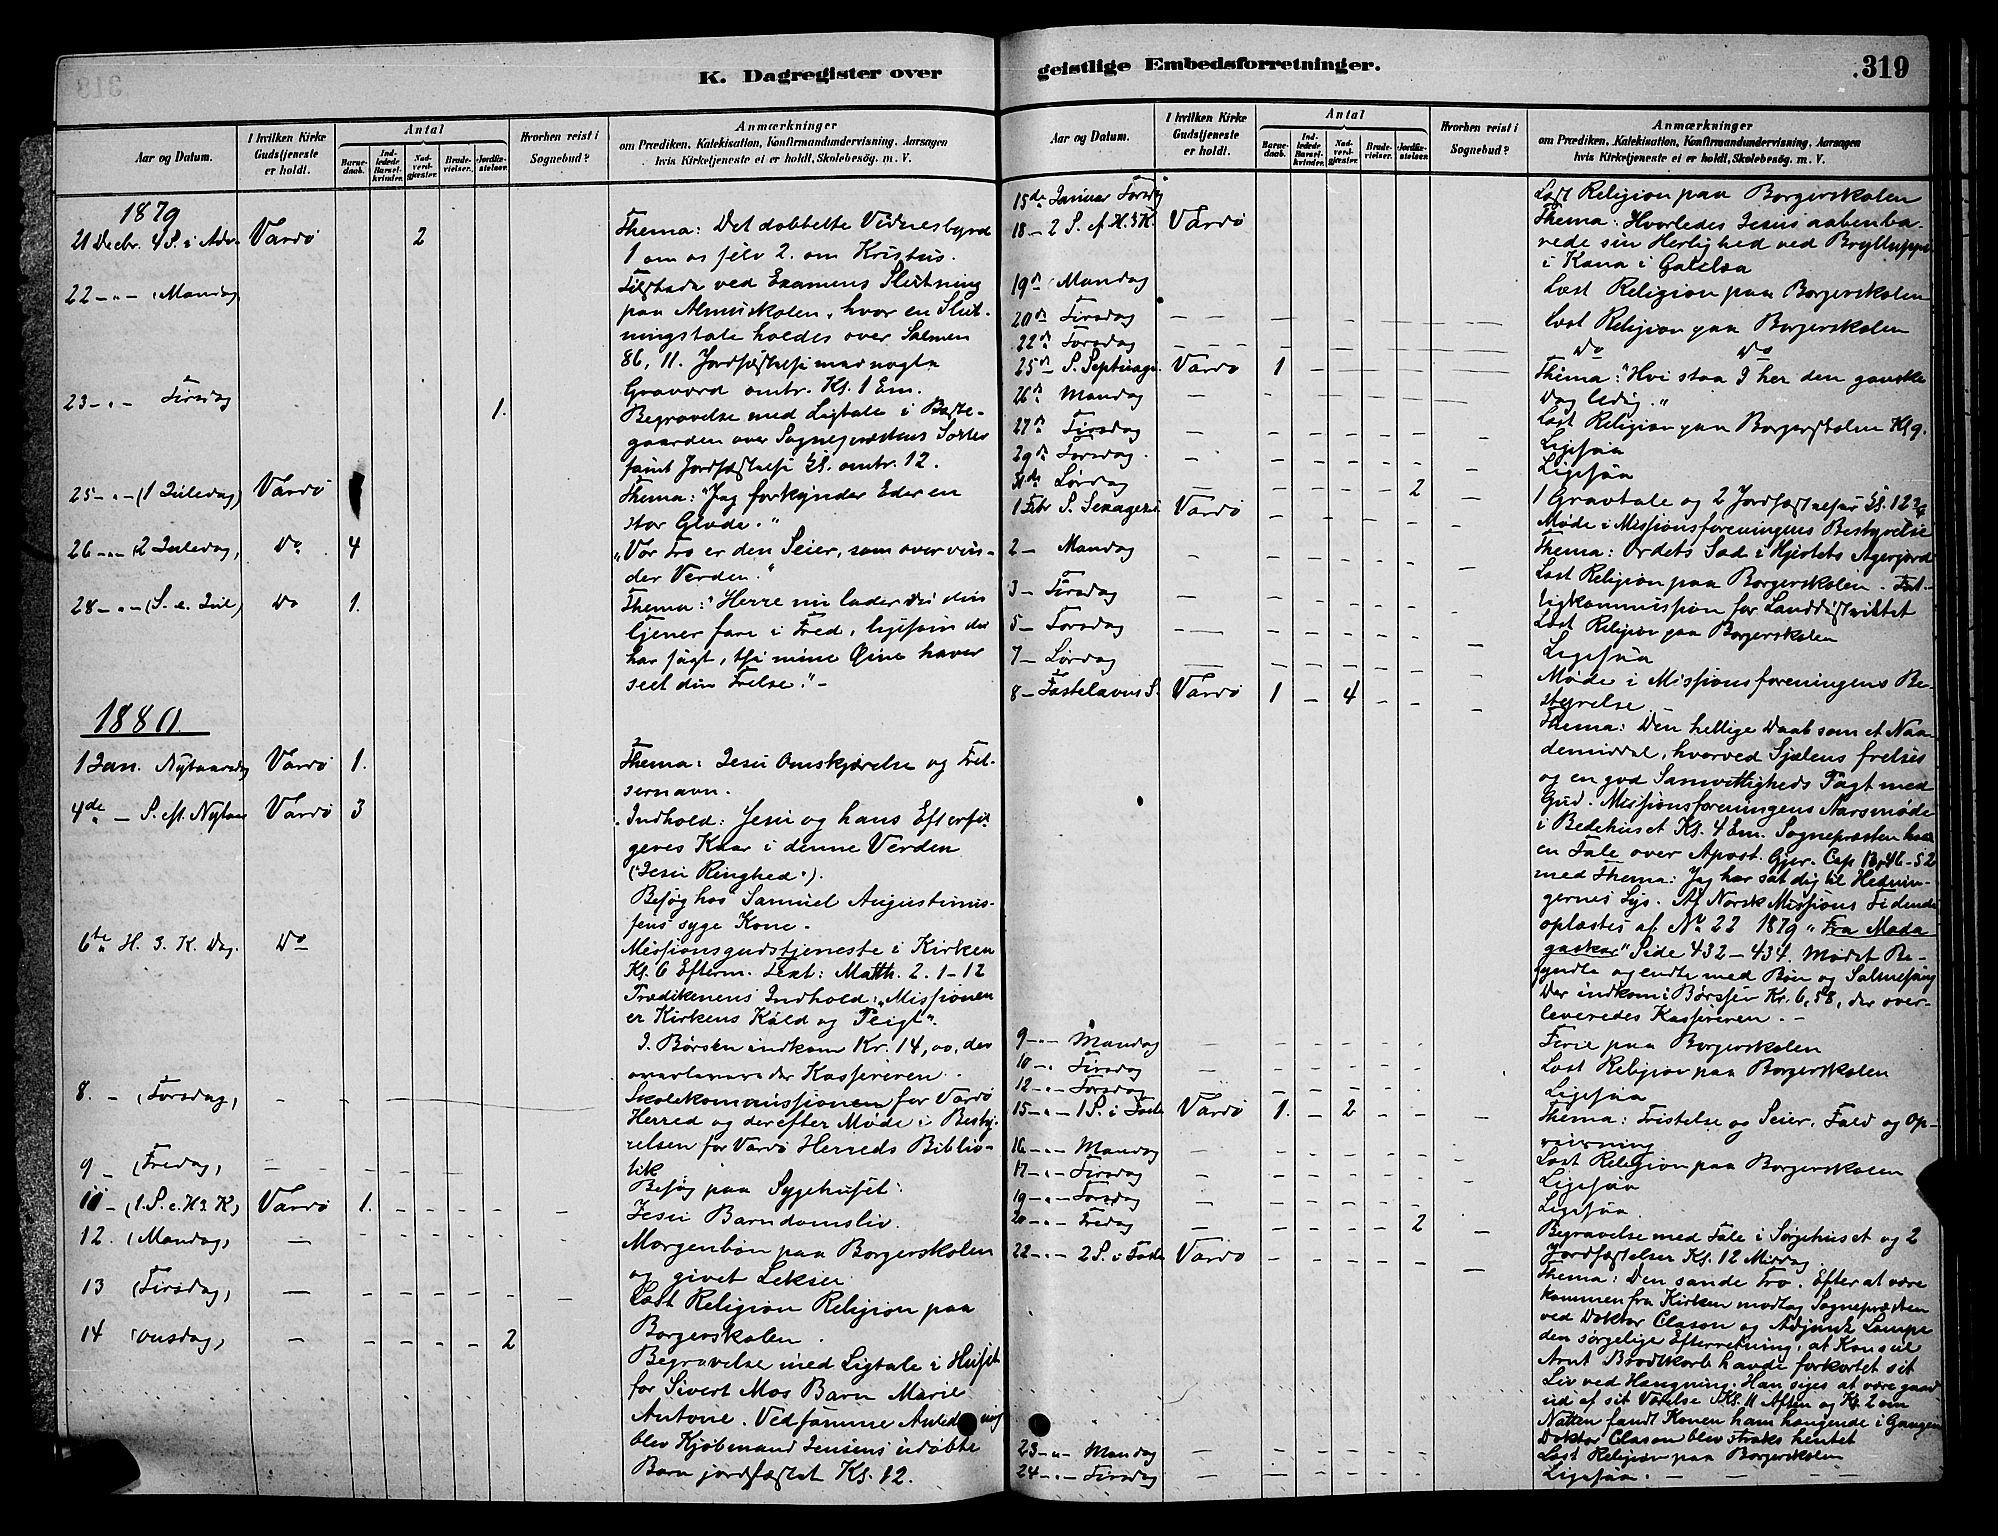 K. Dagregister over
Aar og Datum.
I hvilken Kirke Gudstjeneste er holdt.
Antal
Barnedaab.
Indledede Barselkvinder.
Nadverdgjæster.
Brudevielser.
Jordfæstelser.
Hvorhen reist i Sognebud?
Anmærkninger
om Prædiken, Katekisation, Konfirmandundervisning, Aarsagen
hvis Kirketjeneste ei er holdt, Skolebesøg. m. V.
1879
21 Decbr. 4 S. i Adv. Vardø 2 Thema: Det dobbelte Vidnesbyrd
1 om os selv 2. om Kristus.
22 - " - (Mandag Tilstede ved Examens Slutning
paa Almuskolen, hvor en Slut-
ningstale holdes over Salmen
86, 11. Jordfæstelse med nogle
Gravord omtr. Kl. 1 Em.
23 - " - Tirsdag 1. Begravelse med Ligtale i
gaarden over Sognepræstens
samt Jordfæstelse Kl. omtr. 12.
25 - " - (1 Juledag) Vardø Thema: "Jeg forkynder Eder en
stor Glæde."
26 - " - (2 Juledag, Do 4 "Vor Tro er den Seier, som overvin-
der Verden."
28 - " - (S. e. Jul) Do 1. Thema: "Herre nu lader du din
tjener fare i Fred, ligesom du
har sagt, thi mine Øine haver
seet din Frelse." -
1880.
1 Jan. Nytaarsdag Vardø 1. Thema: Jesu Omskjærelse og Frel-
sernavn.
4de - S. eft. Nytaar Vardø 3 Indhold: Jesu og hans Efterføl-
geres Kaar i denne Verden
(Jesu Ringhed.).
Besøg hos Samuel Augustinus-
sens syge Kone.
6te " H. 3. K. Dag. Do Missionsgudstjeneste i Kirken
Kl. 6 Efterm. Text: Matth. 2. 1-12
Prædikenens Indhold: "Missionen
er Kirkens Kald og Pligt".
I Børsen indkom Kr. 14,00, der
Kassereren.
8. - (Torsdag, Skolekommissionen for Vardø
Herred og derefter Møde i Besty-
relsen for Vardø Herreds Biblio-
tek
9 - (Fredag, Besøg paa Sygehuset.
11 - (1. S. e. H. 3. K.) Vardø 1. Jesu Barndomsliv.
12. (Mandag, Morgenbøn paa Borgerskolen
og givet Lekser.
13 (Tirsdag, Læst Religion Religion paa
Borgerskolen.
14 (Onsdag, 2 Begravelse med Ligtale i Huset
for Sivert Mos Barn Marie
Antonie. Ved samme Anledning
blev Kjøbmand Jensens udøbte
Barn jordfæstet Kl. 12.
geistlige Embedsforretninger.
319
Aar og Datum.
I hvilken Kirke Gudstjeneste er holdt.
Antal
Barnedaab.
Indledede Barselkvinder.
Nadverdgjæster.
Brudevielser.
Jordfæstelser.
Hvorhen reist i Sognebud?
Anmærkninger
om Prædiken, Katekisation, Konfirmandundervisning, Aarsagen
hvis Kirketjeneste ei er holdt, Skolebesøg. m. V.
15de Januar Torsdag Læst Religion paa Borgerskolen
18 - 2 S. ef. H. 3 K. Vardø Thema: Hvorledes Jesus aabenba-
rede sin Herlighed ved Brylluppet
i Kana i Galelæa
19de Mandag Læst Religion paa Borgerskolen
20de Tirsdag Læst Religion paa Borgerskolen
22de Torsdag Do Do
25de S. Septuages. Vardø 1 Thema: "Hvi staa I her den ganske
Dag ledig."
26de Mandag Læst Religion paa Borgerskolen Kl 9.
27de Tirsdag Ligesaa
29de Torsdag. Ligesaa
31de Lørdag 2 1 Gravtale og 2 Jordfæstelser Kl. 12
Møde i Missionsforeningens Bestyrelse
1 Febr S. Sexagesi Vardø Thema: Ordets Sæd i Hjertets Agerjord
2 - Mandag Læst Religion paa Borgerskolen. Fat-
tigkommission for Landdistriktet
3 - Tirsdag Læst Religion paa Borgerskolen
5 - Torsdag Ligesaa
7 - Lørdag Møde i Missionsforeningens Be-
styrelse
8 - Fastelavns S. Vardø 1 - 4 Thema: Den hellige Daab som et Naa-
demiddel, hvorved Sjælens frelses
og en god Samvittigheds Pagt med
Gud. Missionsforeningens Aarsmøde
i Bedehuset Kl. 4 Em. Sognepræsten holdt
en Tale over Apost. Gjer. Cap 13, 46-52
med Thema: Jeg har sat dig til Hednin-
gernes Lys. Af Norsk Missions Tidende
oplæstes af No 22 1879 "Fra Mada-
gaskar" Side 432-434. Mødet Be-
gyndte og endte med Bøn og Salmesang
Der indkom i Børsen Kr. 6,58, der over-
leveredes Kassereren. -
9 - " - Mandag Ferie paa Borgerskolen
10 - " Tirsdag Læst Religion paa Borgerskolen
12 - " Torsdag Ligesaa
15 - " - 1 S. i Faste Vardø 1. - 2 Thema: Fristelse og Seier, Fald og Op-
reisning
16 - " Mandag Læst Religion paa Borgerskolen
17 - " Tirsdag Ligesaa
19 - " Torsdag Ligesaa.
20 - " Fredag 2 Begravelse med Tale i Sørgehuset og 2
Jordfæstelser Kl. 12 Middag.
22 - " - 2 S. i Faste Vardø Thema: Den sande Tro. Efter at være
kommen fra Kirken modtog Sognepræsten
ved Doktor Clason og Adjunk Lampe
den sørgelige Efterretning, at Konsul
Arnt Brodtkorb havde forkortet sit
Liv ved Hængning. Han siges at være gaaet
ud af sit Værelse Kl. 11 Aften og Kl. 2 om
Natten fandt Konen ham hængende i Gangen
Doktor Clason blev straks hentet
23 - " - Mandag Læst Religion paa Borgerskolen
24 - " - Tirsdag Ligesaa.